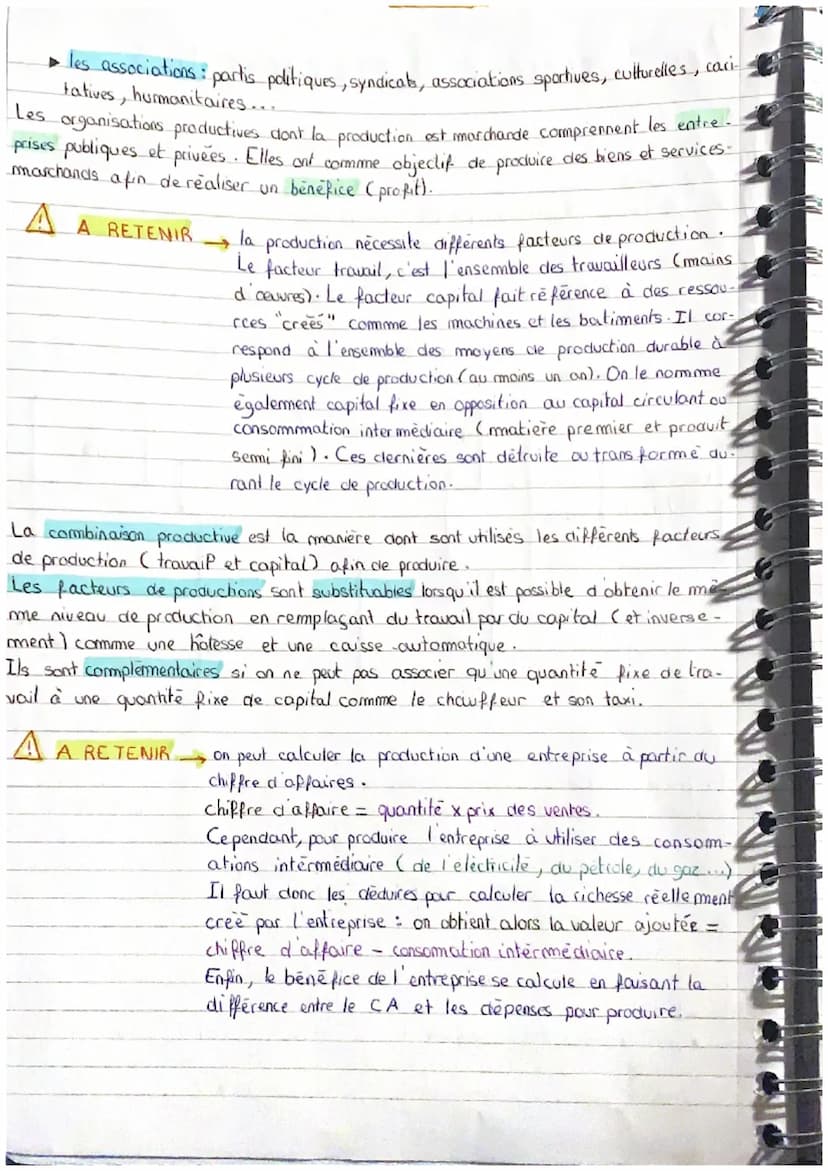 ▸ les associations : partis politiques, syndicats, associations sportives, culturelles, cari-
tatives, humanitaires...
Les organisations productives dont la production est marchande comprennent les entre-
prises publiques et privées. Elles ont comme objectif de produire des biens et services
marchands afin de réaliser un bénéfice (profit).
⚠ A RETENIR → la production nécessite différents facteurs de production.
Le facteur travail, c'est l'ensemble des travailleurs (mains
d'œuvres). Le facteur capital fait référence à des ressou-
rces "creés" comme les machines et les batiments. Il cor-
respond à l'ensemble des moyens de production durable à
plusieurs cycle de production (au moins un an). On le nomme
également capital fixe en opposition au capital circulant ou
consommation intermédiaire (matière premier et produit
semi fini). Ces dernières sont détruite ou transformé du-
rant le cycle de production.
La combinaison productive est la manière dont sont utilisés les différents facteurs
de production (travail et capital) afin de produire.
Les facteurs de productions sont substituables lorsqu'il est possible d'obtenir le mê-
me niveau de production en remplaçant du travail par du capital (et inverse-
ment) comme une hôtesse et une caisse automatique.
Ils sont complémentaires si on ne peut pas associer qu'une quantité fixe de tra-
vail à une quantité fixe de capital comme le chauffeur et son taxi.
⚠ A RETENIR → on peut calculer la production d'une entreprise à partir du
chiffre d'affaires.
chiffre d'affaire = quantité x prix des ventes.
Cependant, pour produire l'entreprise à utiliser des consom-
ations intérmédiaire (de l'eléctricité, du pétrole, du gaz ...)
Il faut donc les déduires pour calculer la richesse réellement
creé par l'entreprise : on obtient alors la valeur ajoutée =
chiffre d'affaire - consomation intérmédiaire.
Enfin, le bénéfice de l'entreprise se calcule en faisant la
différence entre le CA et les dépenses pour produire.